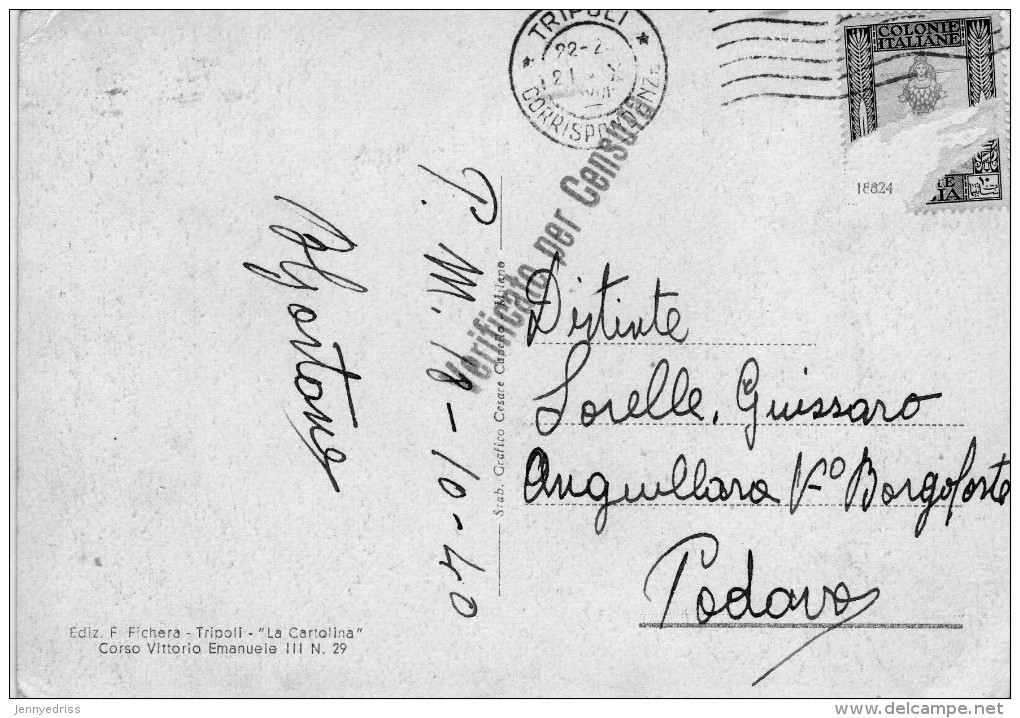 TRIPOLI
CORRISPONDENZE
COLONIE
ITALIANE
18824
Verificato per Censura
P. M. 19-10-40
Stab. Grafico Cesare Capello Milano
Distinte
Sorelle. Guissaro
Anguillara Vº Borgoforte
Padova
Ediz. F. Fichera - Tripoli - "La Cartolina"
Corso Vittorio Emanuele III N. 29
jennyedriss
delcampe.net